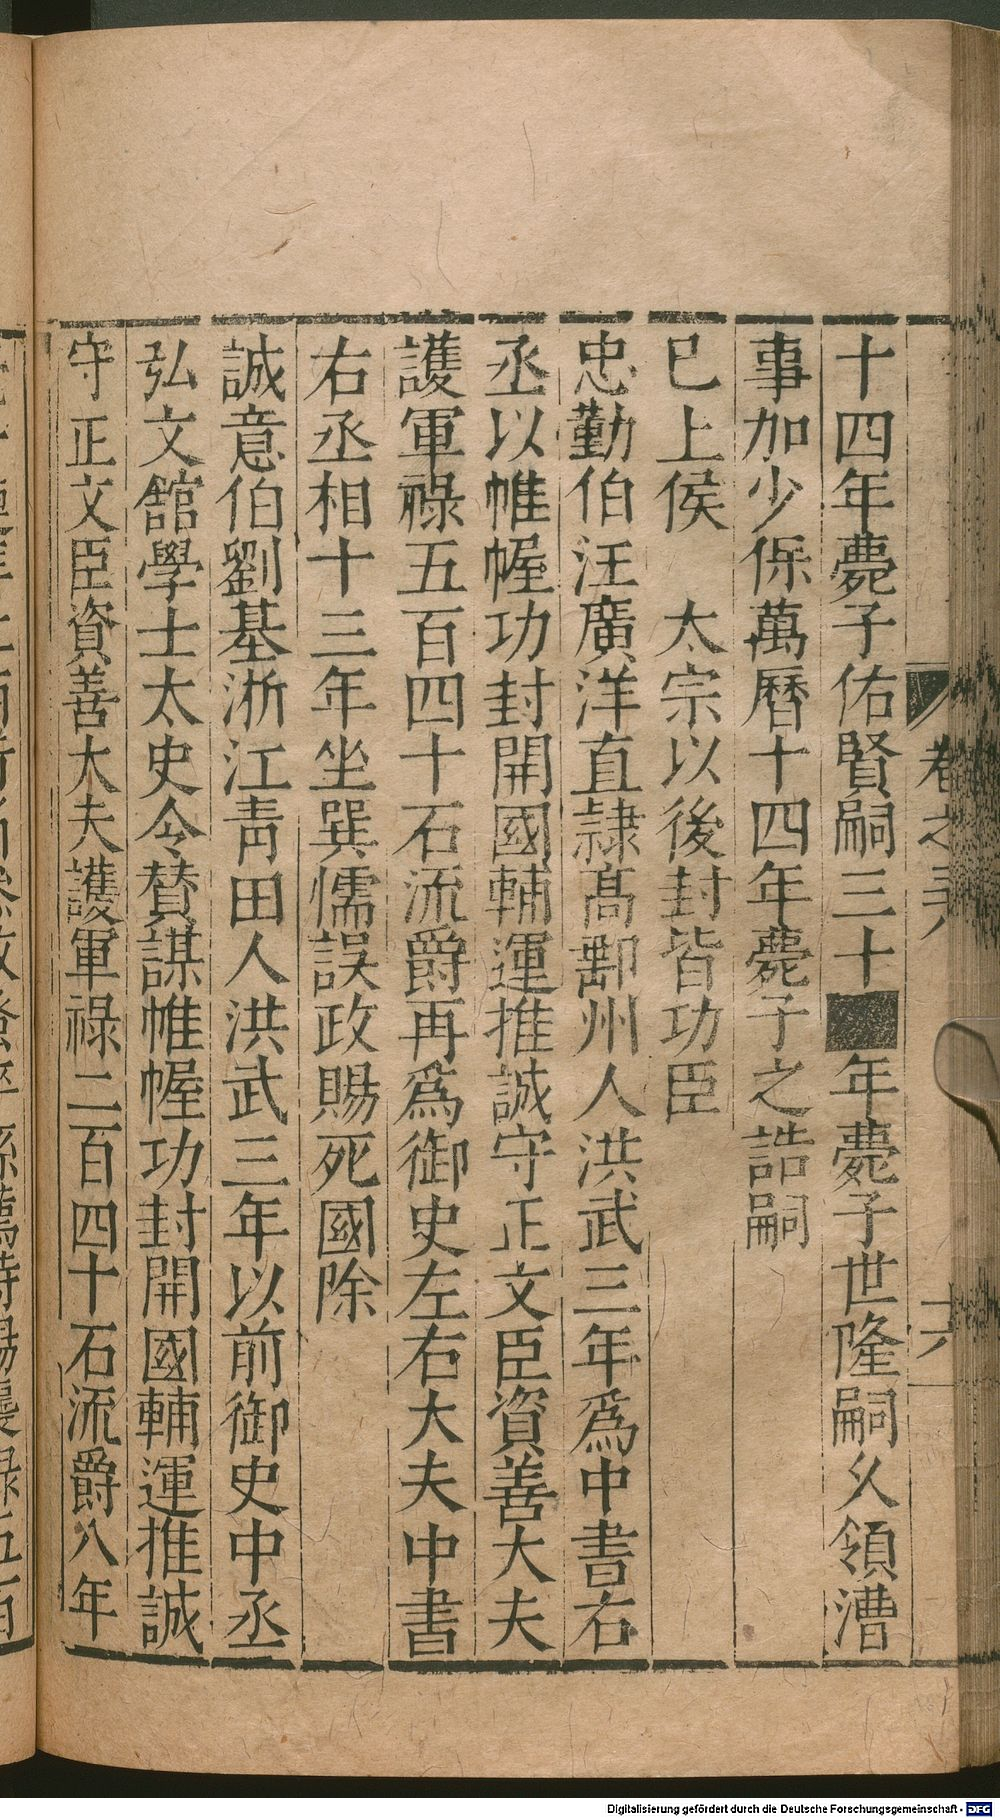 十四年薨子佑賢嗣三十■年薨子世隆嗣久領漕
事加少保萬曆十四年薨子之誥嗣
已上侯　太宗以後封皆功臣
忠勤伯汪廣洋直隷高郵州人洪武三年爲中書右
丞以帷幄功封開國輔運推誠守正文臣資善大夫
護軍祿五百四十石流爵再爲御史左右大夫中書
右丞相十三年坐巽懦誤政賜死國除
誠意伯劉基浙江青田人洪武三年以前御史中丞
弘文館學士太史令賛謀帷幄功封開國輔運推誠
守正文臣資善大夫護軍祿二百四十石流爵八年
卷之
十六
Digitalisierung gefördert durch die Deutsche Forschungsgemeinschaft - DFG